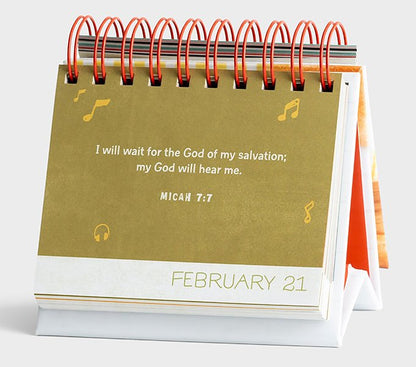 I will wait for the God of my salvation;
my God will hear me.
MICAH 7:7
FEBRUARY 21